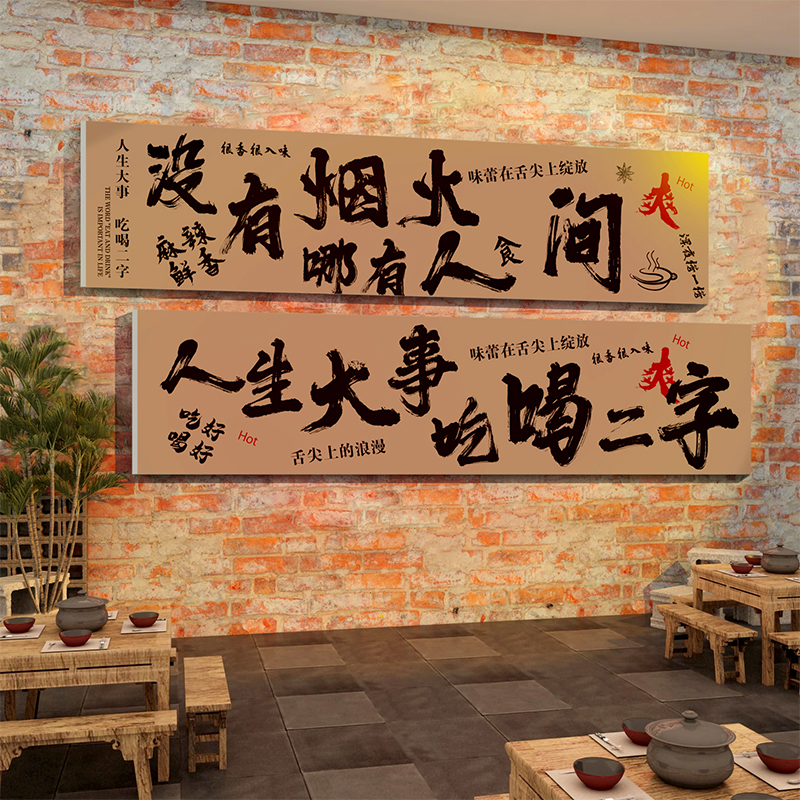 人生大事 吃喝二字
THE WORD "EAT AND DRINK"
IS IMPORTANT IN LIFE
没有烟火
哪有人间
很香很入味
麻辣
鲜香
味蕾在舌尖上绽放
食
爽
Hot
深夜撸一撸
人生大事
吃喝二字
吃好
喝好
Hot
舌尖上的浪漫
味蕾在舌尖上绽放
很香很入味
爽
Hot